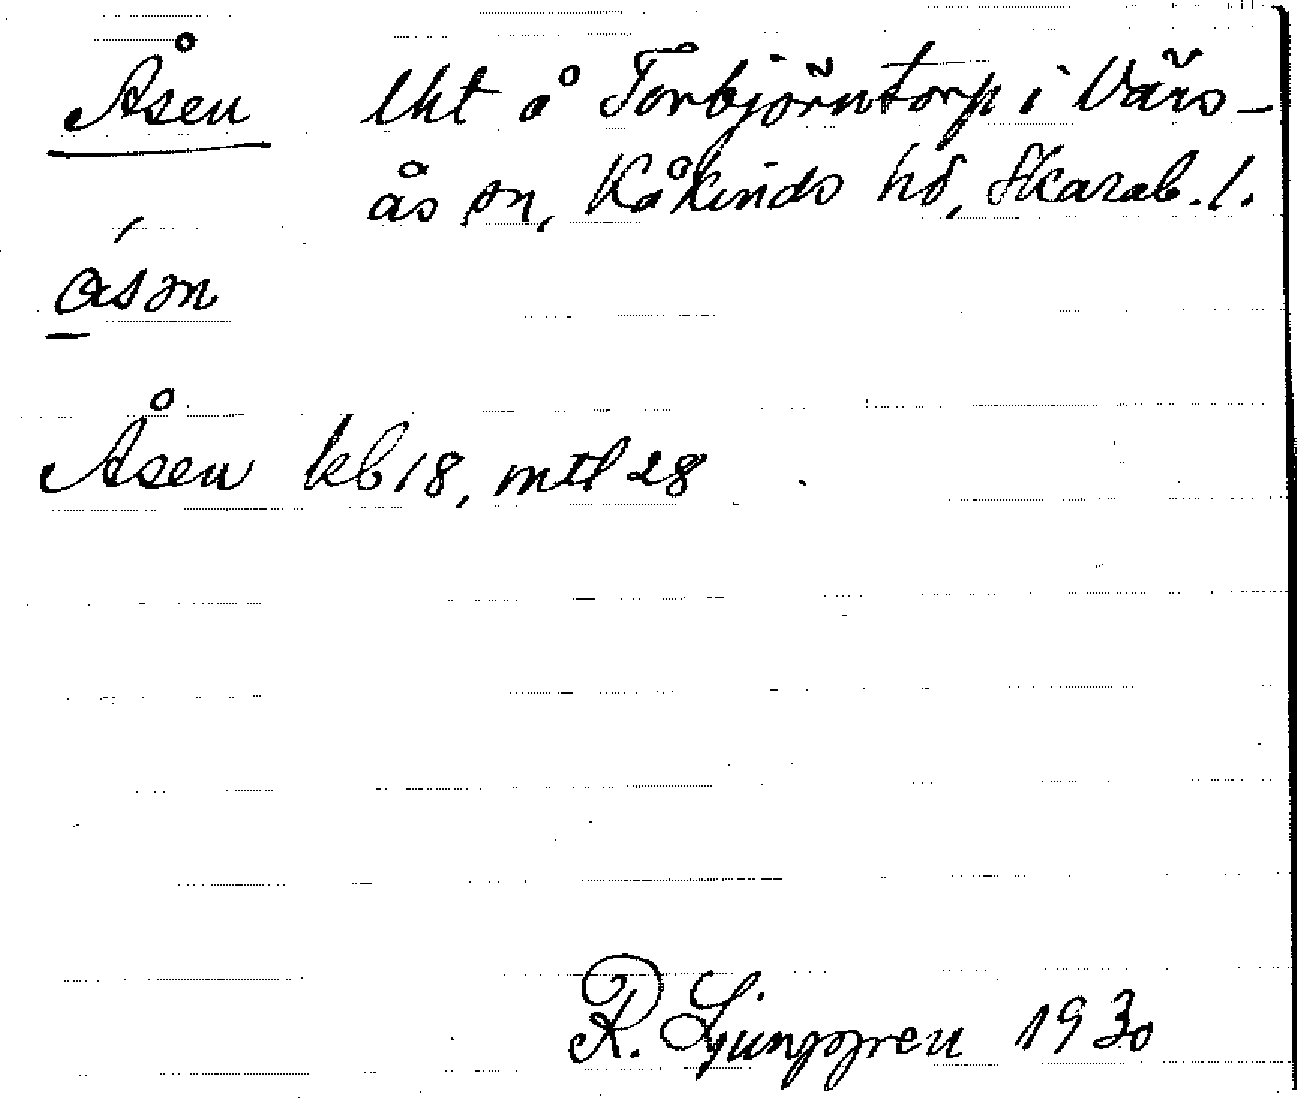 Åsen lht å Torbjörntorp i Värs-
ås sn, Kåkinds hd, Skarab. l.
Åsen kb 18, mtl 28
R. Ljunggren 1930